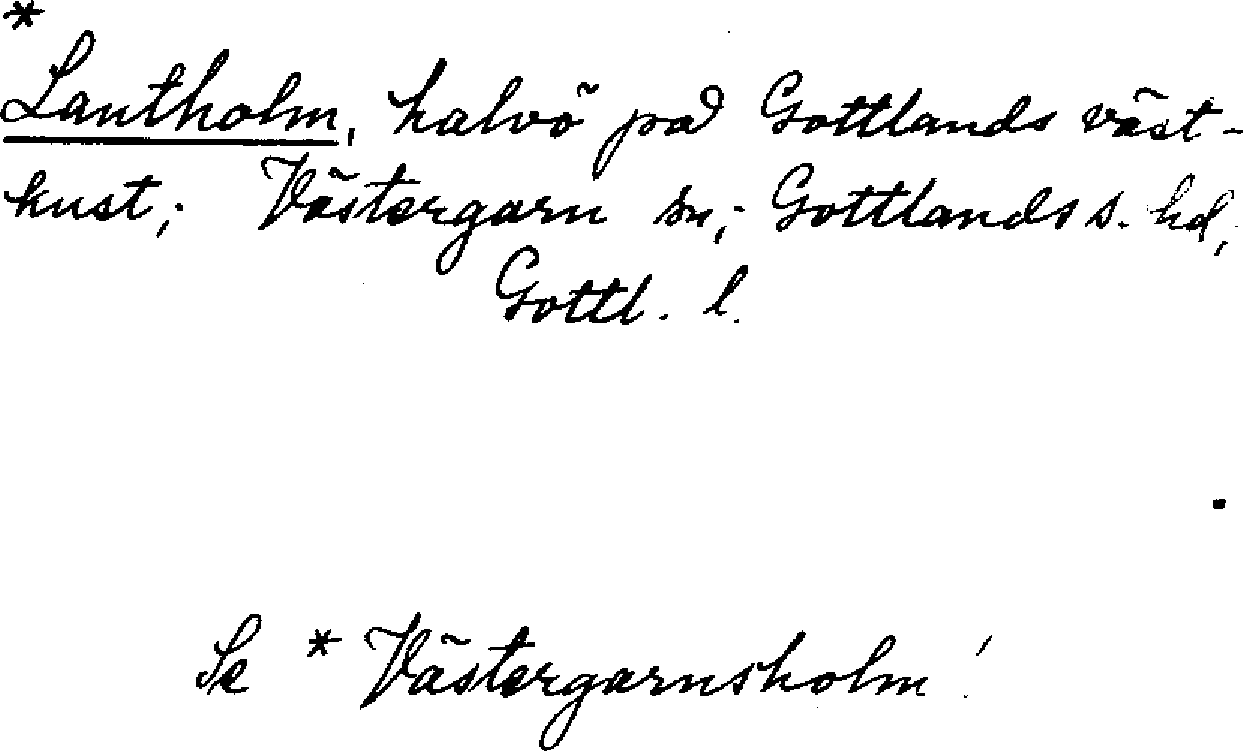 *
Lantholm, halvö på Gottlands väst-
kust; Västergarn sn; Gottlands s. hd,
Gottl. l.
Se * Västergarnsholm!